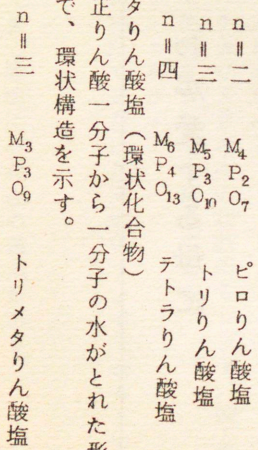 n＝二　M₄P₂O₇　ピロりん酸塩
n＝三　M₅P₃O₁₀　トリりん酸塩
n＝四　M₆P₄O₁₃　テトラりん酸塩
タりん酸塩（環状化合物）
正りん酸一分子から一分子の水がとれた形
で、環状構造を示す。
n＝三　M₃P₃O₉　トリメタりん酸塩